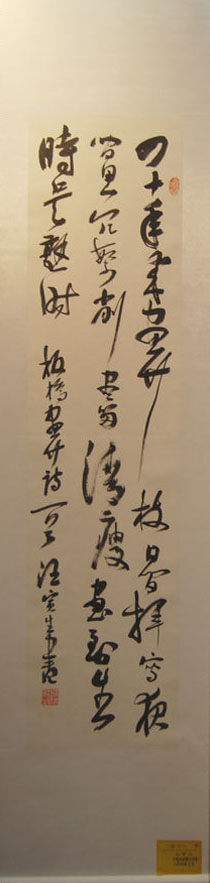 四十年来画竹枝日間揮寫夜
間思冗繁削尽留清瘦画到生
時是熟时 板橋画竹诗一首 汪寅生